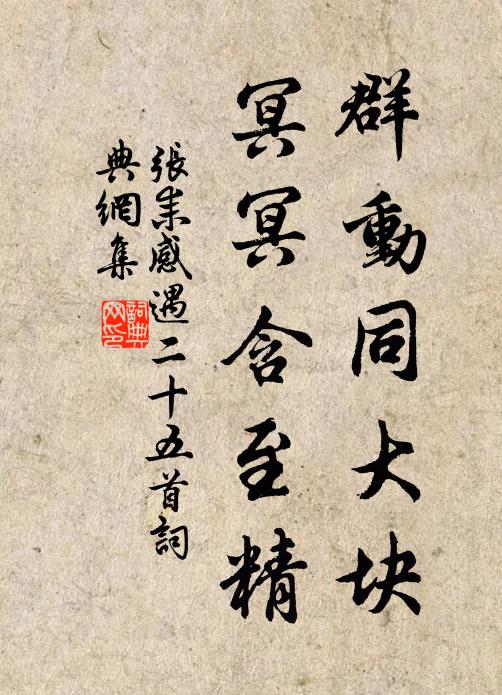 群動同大块
冥冥含至精
張耒感遇二十五首詞
典網集
詞典
网印